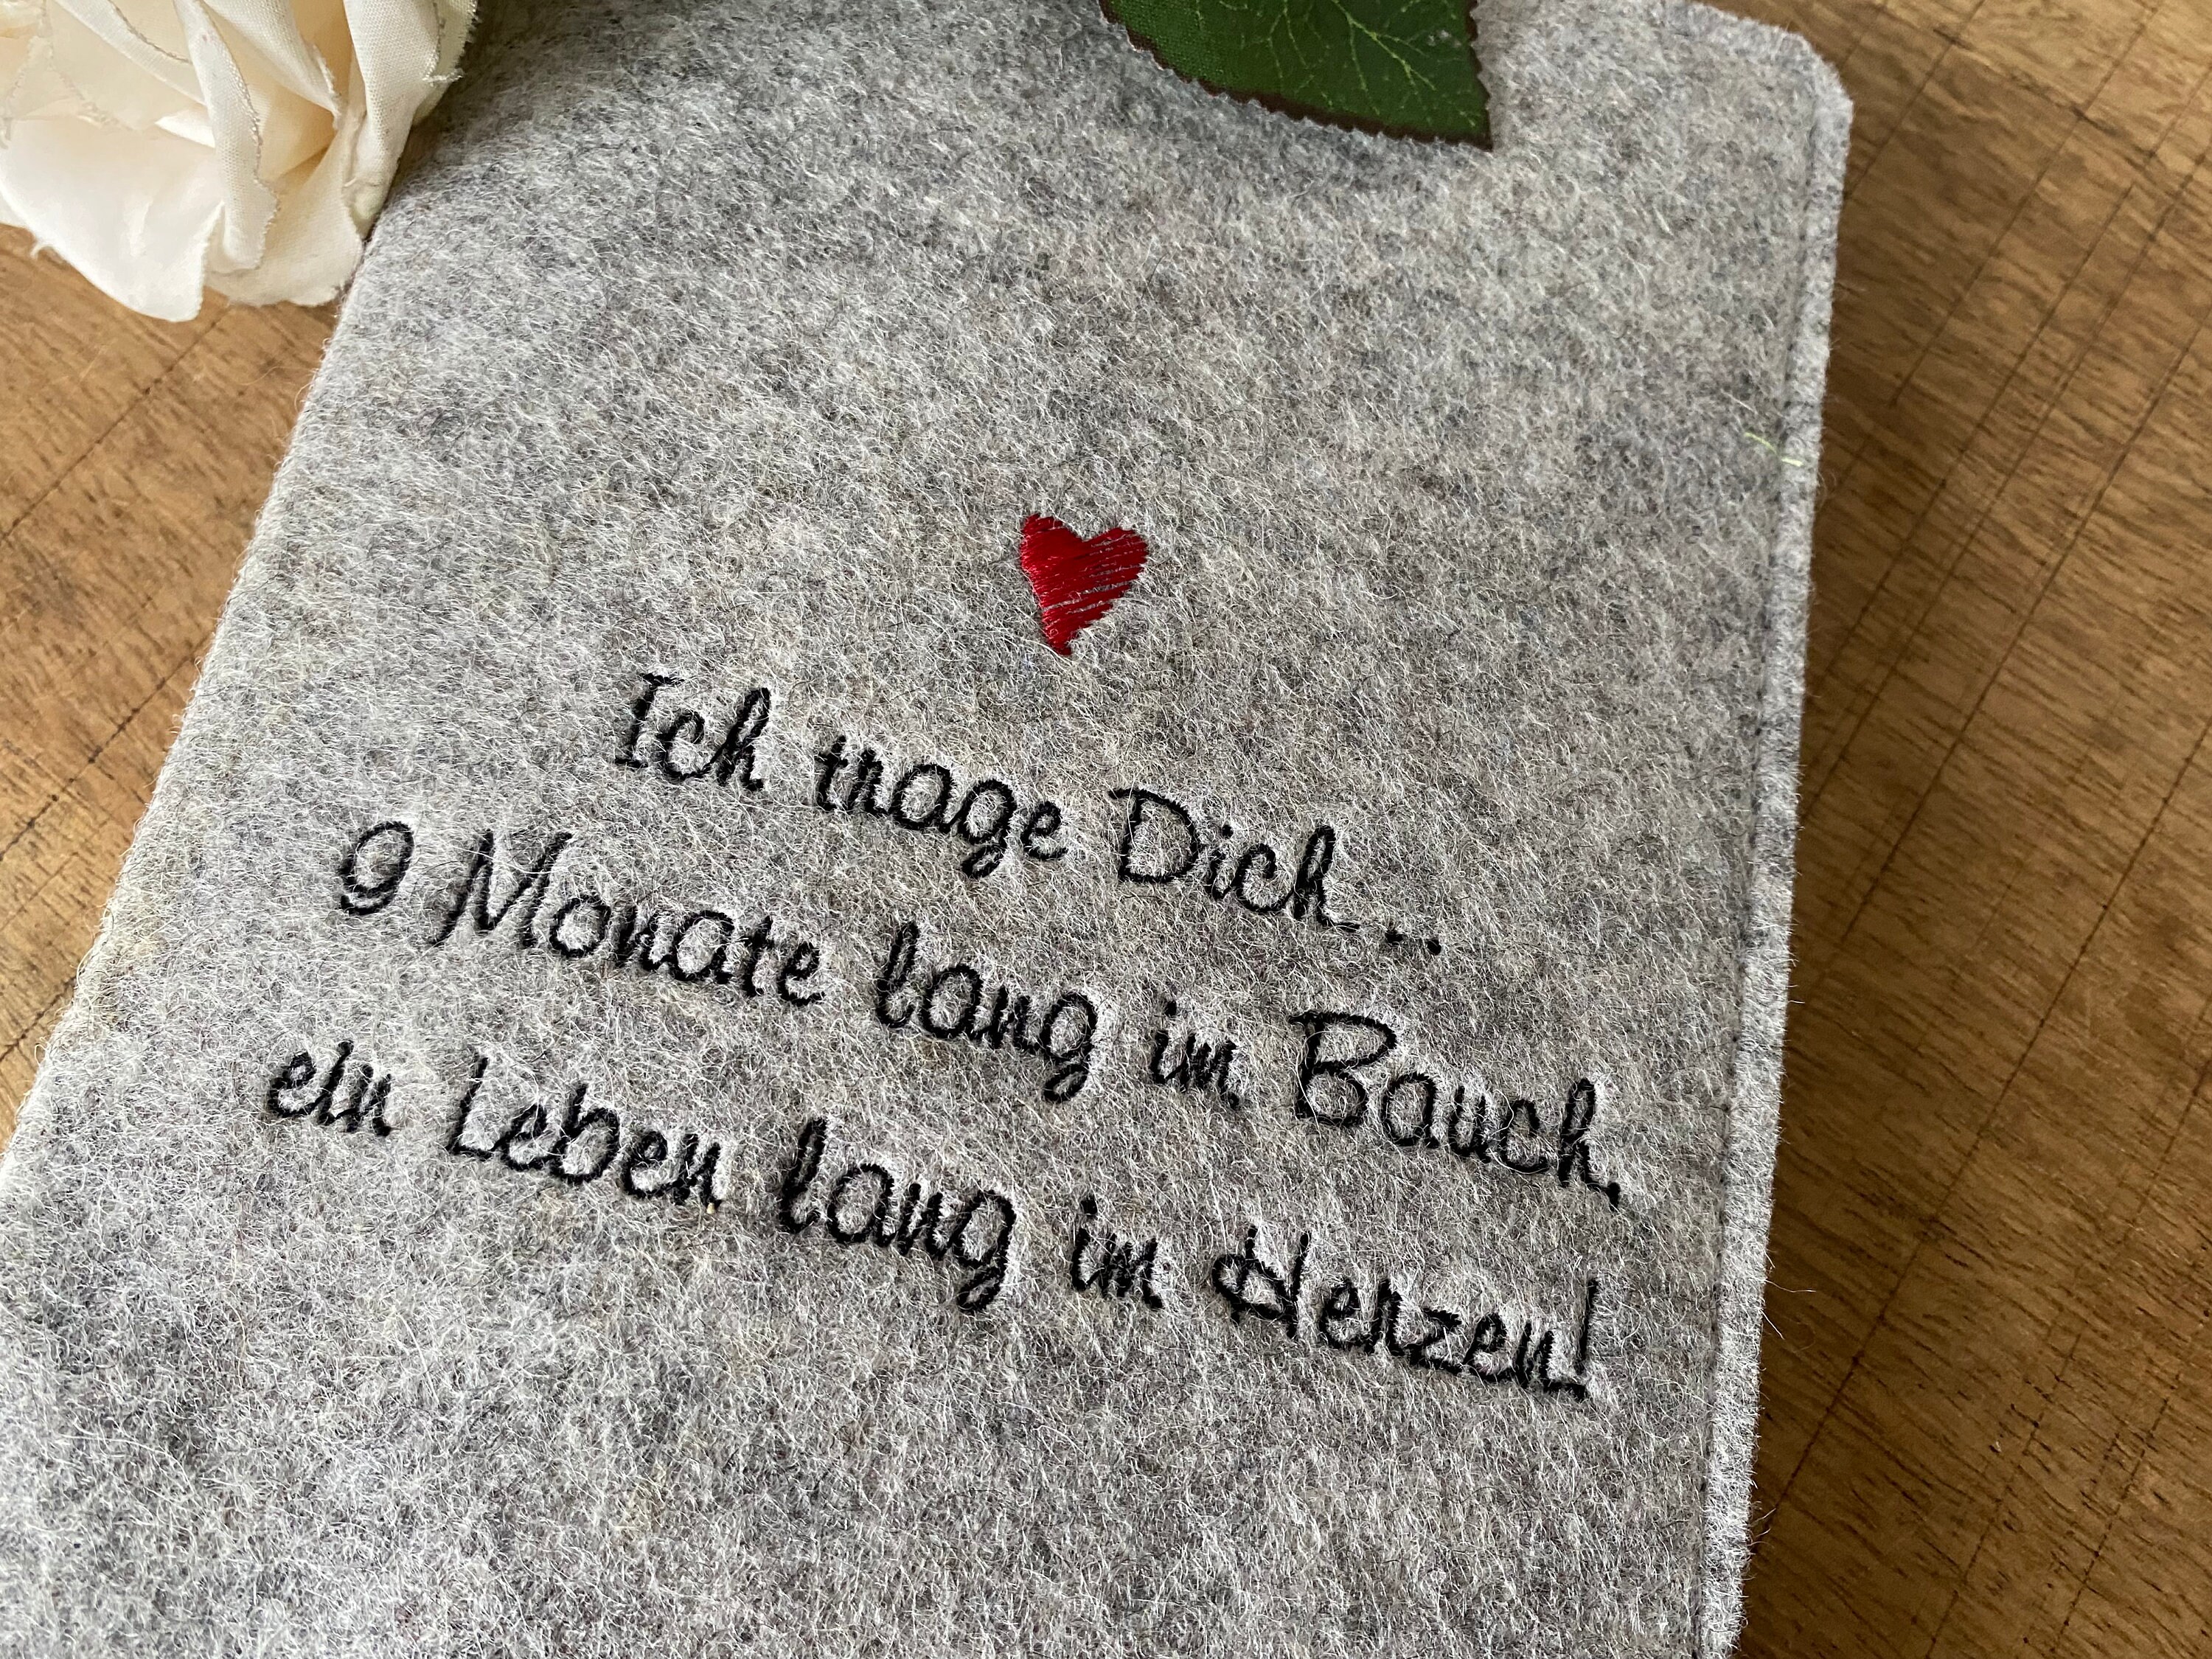 Ich trage Dich...
9 Monate lang im Bauch,
ein Leben lang im Herzen!